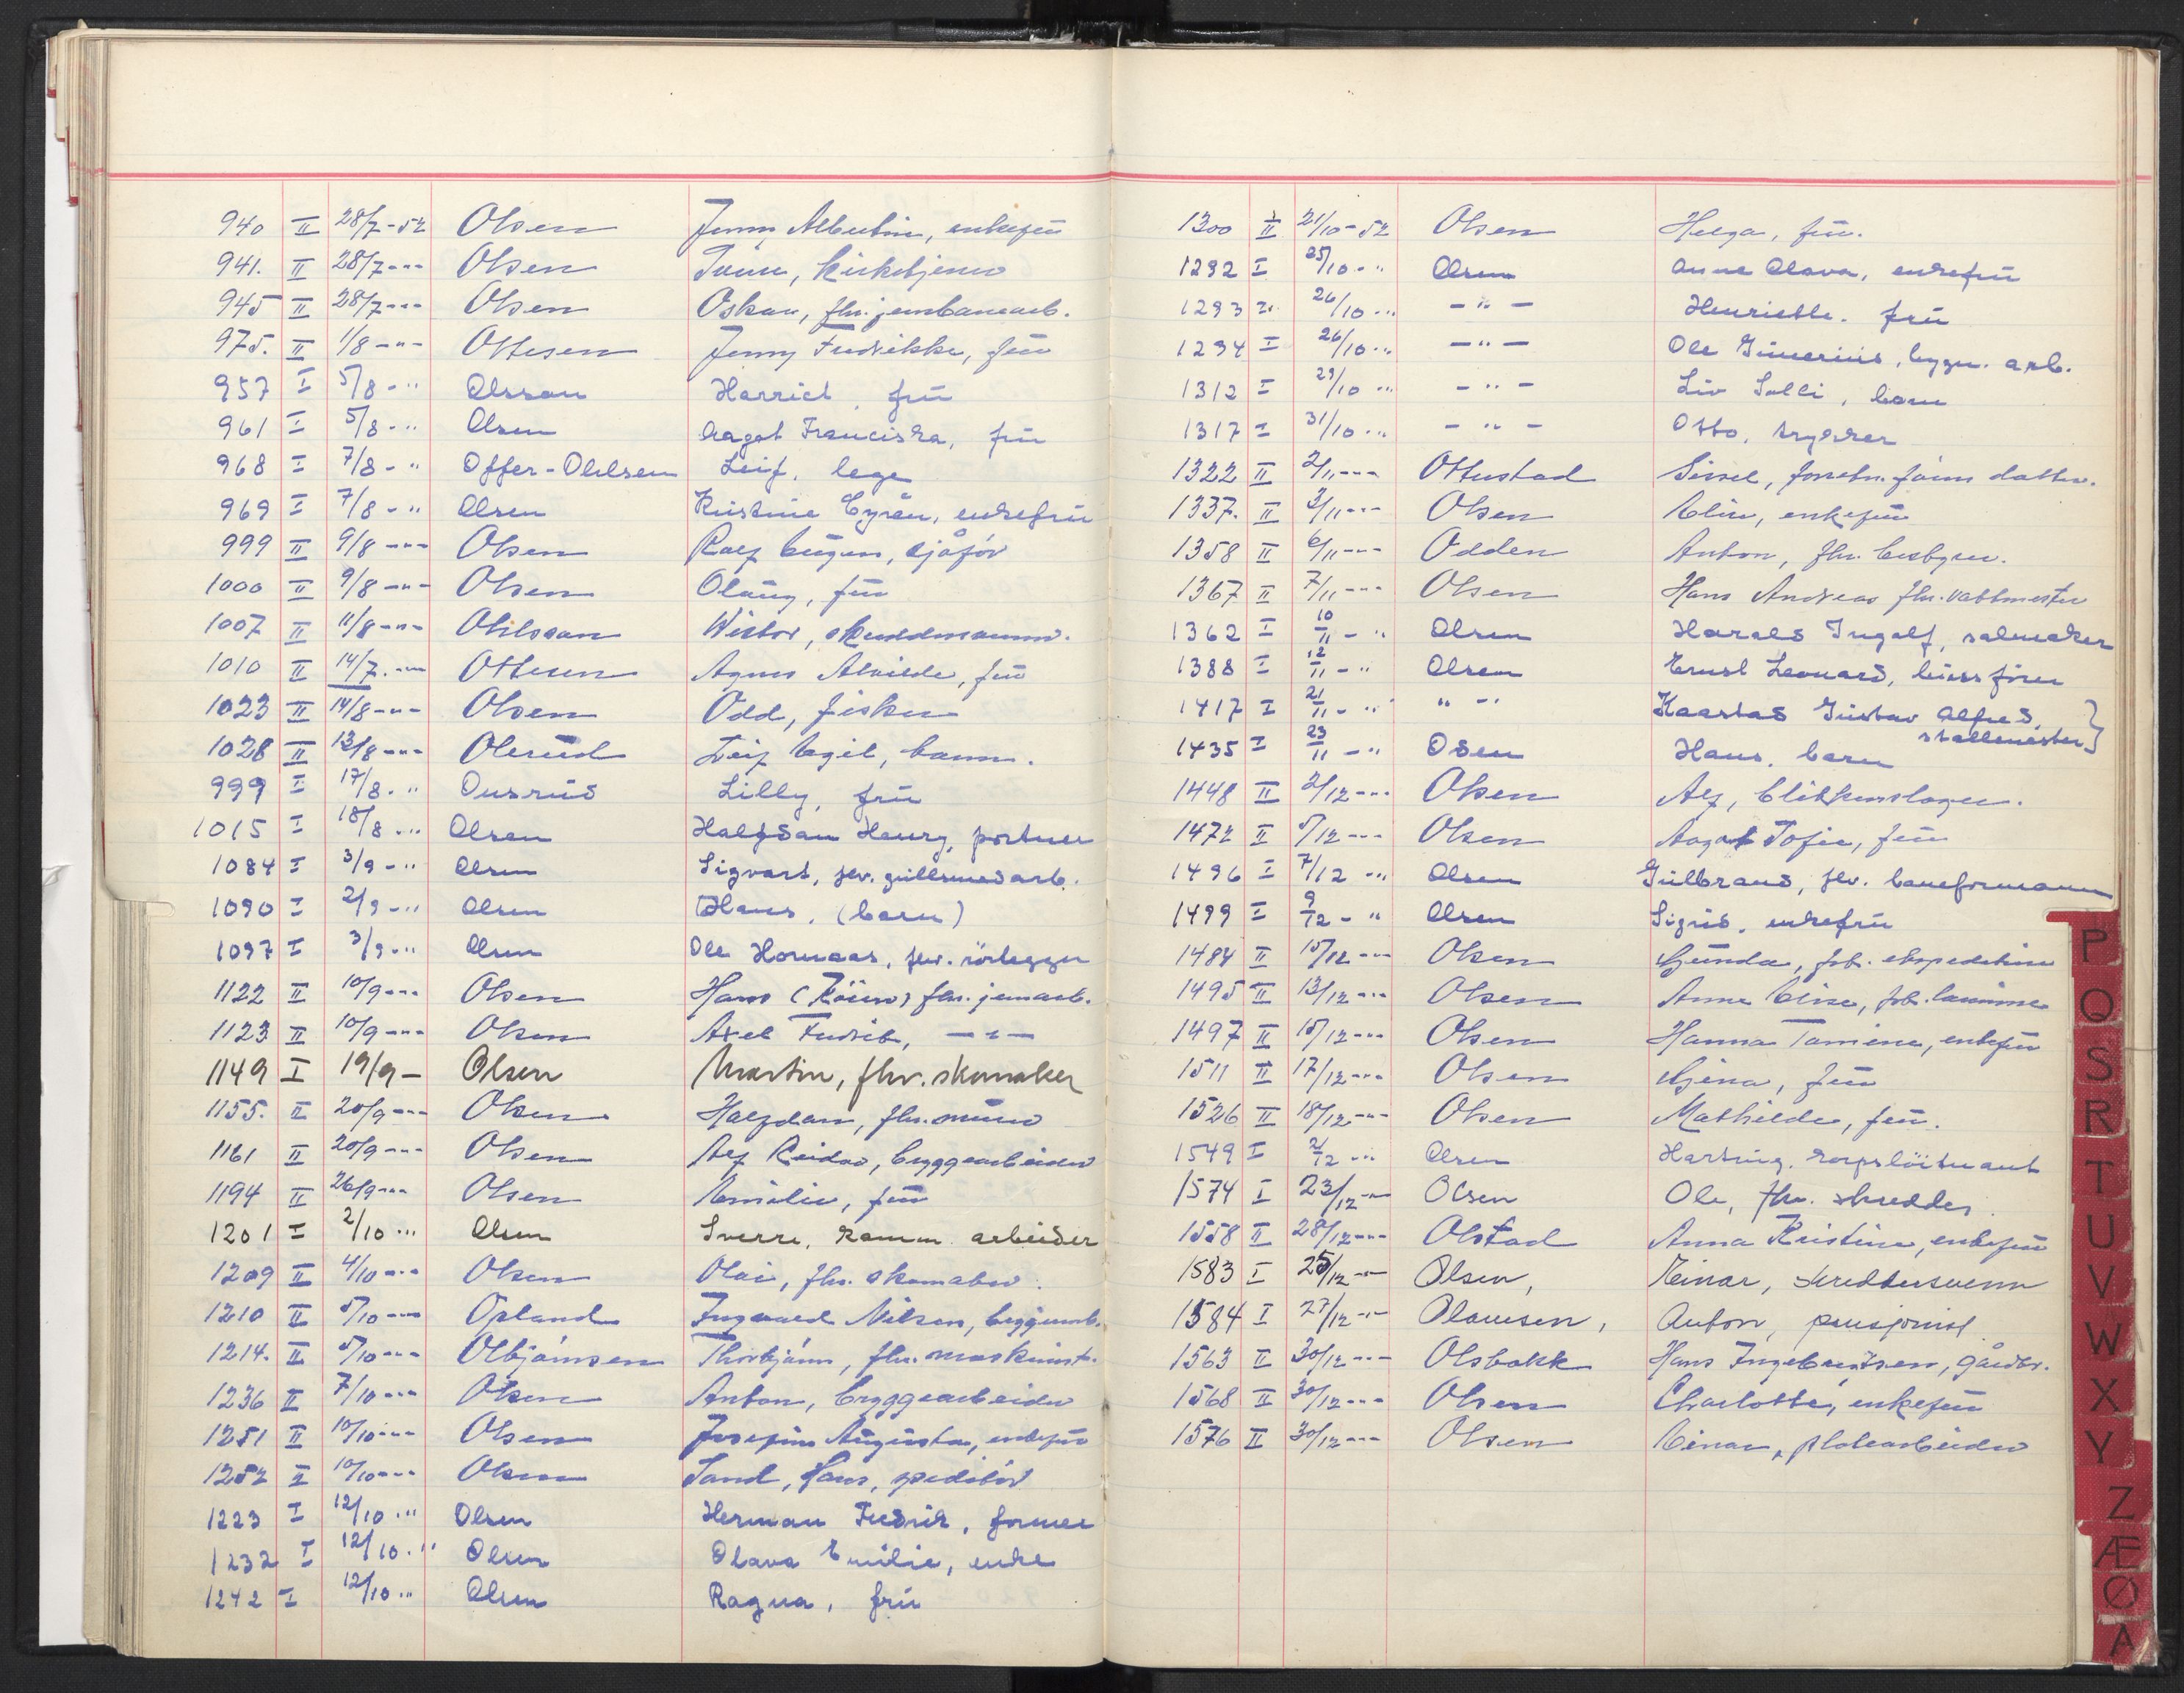 940 II 28/7-52 Olsen Jenny Albertine, enkefrü
941. II 28/7-"- Olsen kirketjener
945 II 28/7-"- Olsen Oskar, fhv. jernbanearb.
975. II 1/8-"- Ottesen Jenny Fredrikke, frü
957 I 5/8-" Olsson Harriet, frü
961 I 5/8-" Olsen Aagot Franciska, frü
968 I 7/8-" Offer-Ohlsen Leif, lege
969 I 7/8-" Olsen Kristine enkefrü
999 II 9/8-"- Olsen Ralf Eugen, sjåfør
1000 II 9/8-"- Olsen Olaug, frü
1007 II 11/8-"- Ohlsson
1010 II 14/7-"- Ottesen Agnes Alvilde, frü
1023 II 14/8-"- Olsen Odd, fisker
1028 II 13/8-"- Olerud Leif Egil, barn.
999 I 17/8-" Ousrud Lilly, frü
1015 I 18/8-" Olsen Halfdan Henry, portner
1084 I 3/9-" Olsen Sigvart, fhv. gullsmedarb.
1090 I 2/9-" Olsen Hans, (barn)
1097 I 3/9-" Olsen Ole Hornaas, fhv. rörlegger
1122 II 10/9-"- Olsen Hans fhv. jernarb.
1123 II 10/9-"- Olsen Axel Fredrik, -"-
1149 I 19/9- Olsen Martin, fhv. skomaker
1155. II 20/9-"- Olsen Halfdan, fhv. murer
1161 II 20/9-"- Olsen Alf Reidar, bryggearbeider
1194 II 26/9-"- Olsen Emilie, frü
1201 I 2/10-" Olsen Sverre, komm. arbeider
1209 II 4/10-"- Olsen Olai, fhv. skomaker.
1210 II 5/10-"- Opland Ingvald Nilsen, byggearb.
1214. II 5/10-"- Olbjörnsen Thorbjörn, fhv. maskinist.
1236 II 7/10-"- Olsen Anton, bryggearbeider
1251 II 10/10-"- Olsen Josefine Augusta, enkefrü
1252 II 10/10-"- Olsen Sand, Hans, speditör
1223 I 12/10-" Olsen Herman Fredrik, former
1232 I 12/10-" Olsen Olava Emilie, enke
1242 I 12/10-" Olsen Ragna, frü
1300 II 21/10-52 Olsen Helga, frü.
1292 I 25/10-" Olsen Anne Olava, enkefrü
1293 I 26/10-" -"- Henriette. frü
1294 I 26/10-" -"- Ole Gunerius, bygn. arb.
1312 I 29/10-" -"- Liv Solli, barn
1317 I 31/10-" -"- Otto, trykker
1322 II 2/11-"- Ottestad Sissel, datter.
1337. II 3/11-"- Olsen Eline, enkefrü
1358 II 6/11-"- Odden Anton, fhv.
1367 II 7/11-"- Olsen Hans Andreas fhv. vaktmester
1362 I 10/11-" Olsen Harald Ingolf, salmaker
1388 I 12/11-" Olsen Ernst Leonard,
1417 I 21/11-" "-" Kaastad Gustav Alfred, }
stallmester
1435 I 23/11-" Osen Hans. barn
1448 II 2/12-"- Olsen Alf, blikkenslager.
1472 II 5/12-"- Olsen Aagot Sofie, frü
1496 I 7/12-" Olsen Gulbrand, fhv. baneformann
1499 I 9/12-" Olsen Sigrid, enkefrü
1484 II 10/12-"- Olsen Gunda, frk. ekspeditrise
1495 II 13/12-"- Olsen Anne Elise, frk. lærerinne
1497 II 15/12-"- Olsen Hanna Tomine, enkefrü
1511 II 17/12-"- Olsen Gina, frü
1526 II 18/12-"- Olsen Mathilde, frü.
1549 I 21/12-" Olsen Hartvig, korpslöitnant
1574 I 23/12-" Olsen Ole, fhv. skredder.
1558 II 28/12-"- Olstad Anna Kristine, enkefrü
1583 I 25/12-" Olsen, Einar, skreddersvenn
1584 I 27/12-" Olaussen, Anton, pensjonist
1563 II 30/12-"- Olsbakk Hans Ingebrigtsen, gårdbr.
1568 II 30/12-"- Olsen Charlotte, enkefrü
1576 II 30/12-"- Olsen Einar, platearbeider
P
Q
S
R
T
U
V
W
X
Y
Z
Æ
Ø
A